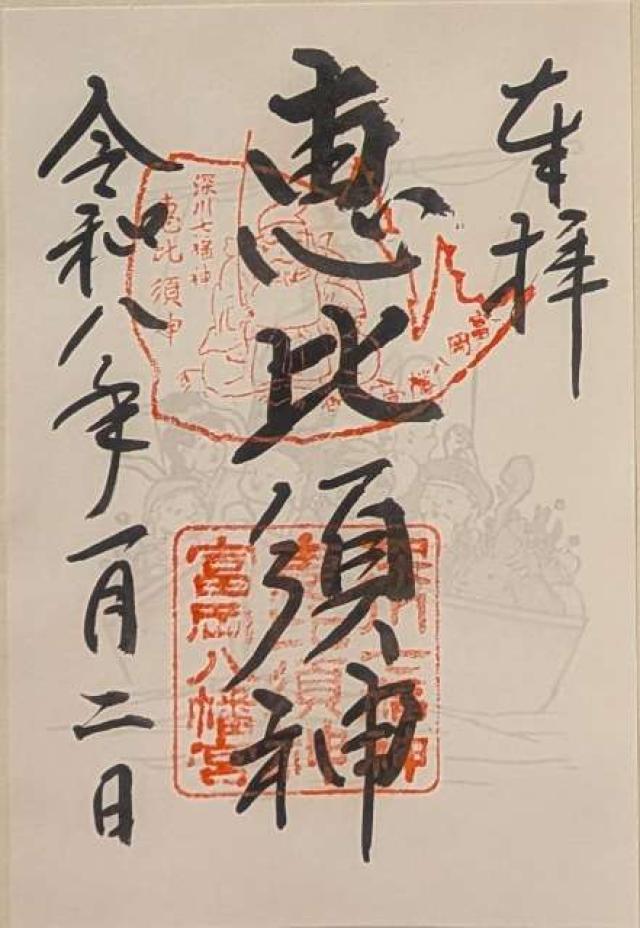 奉拝
恵比須神
令和八年一月二日
深川七福神
恵比須神
富岡八幡宮
深川七福神
恵比須神
富岡八幡宮